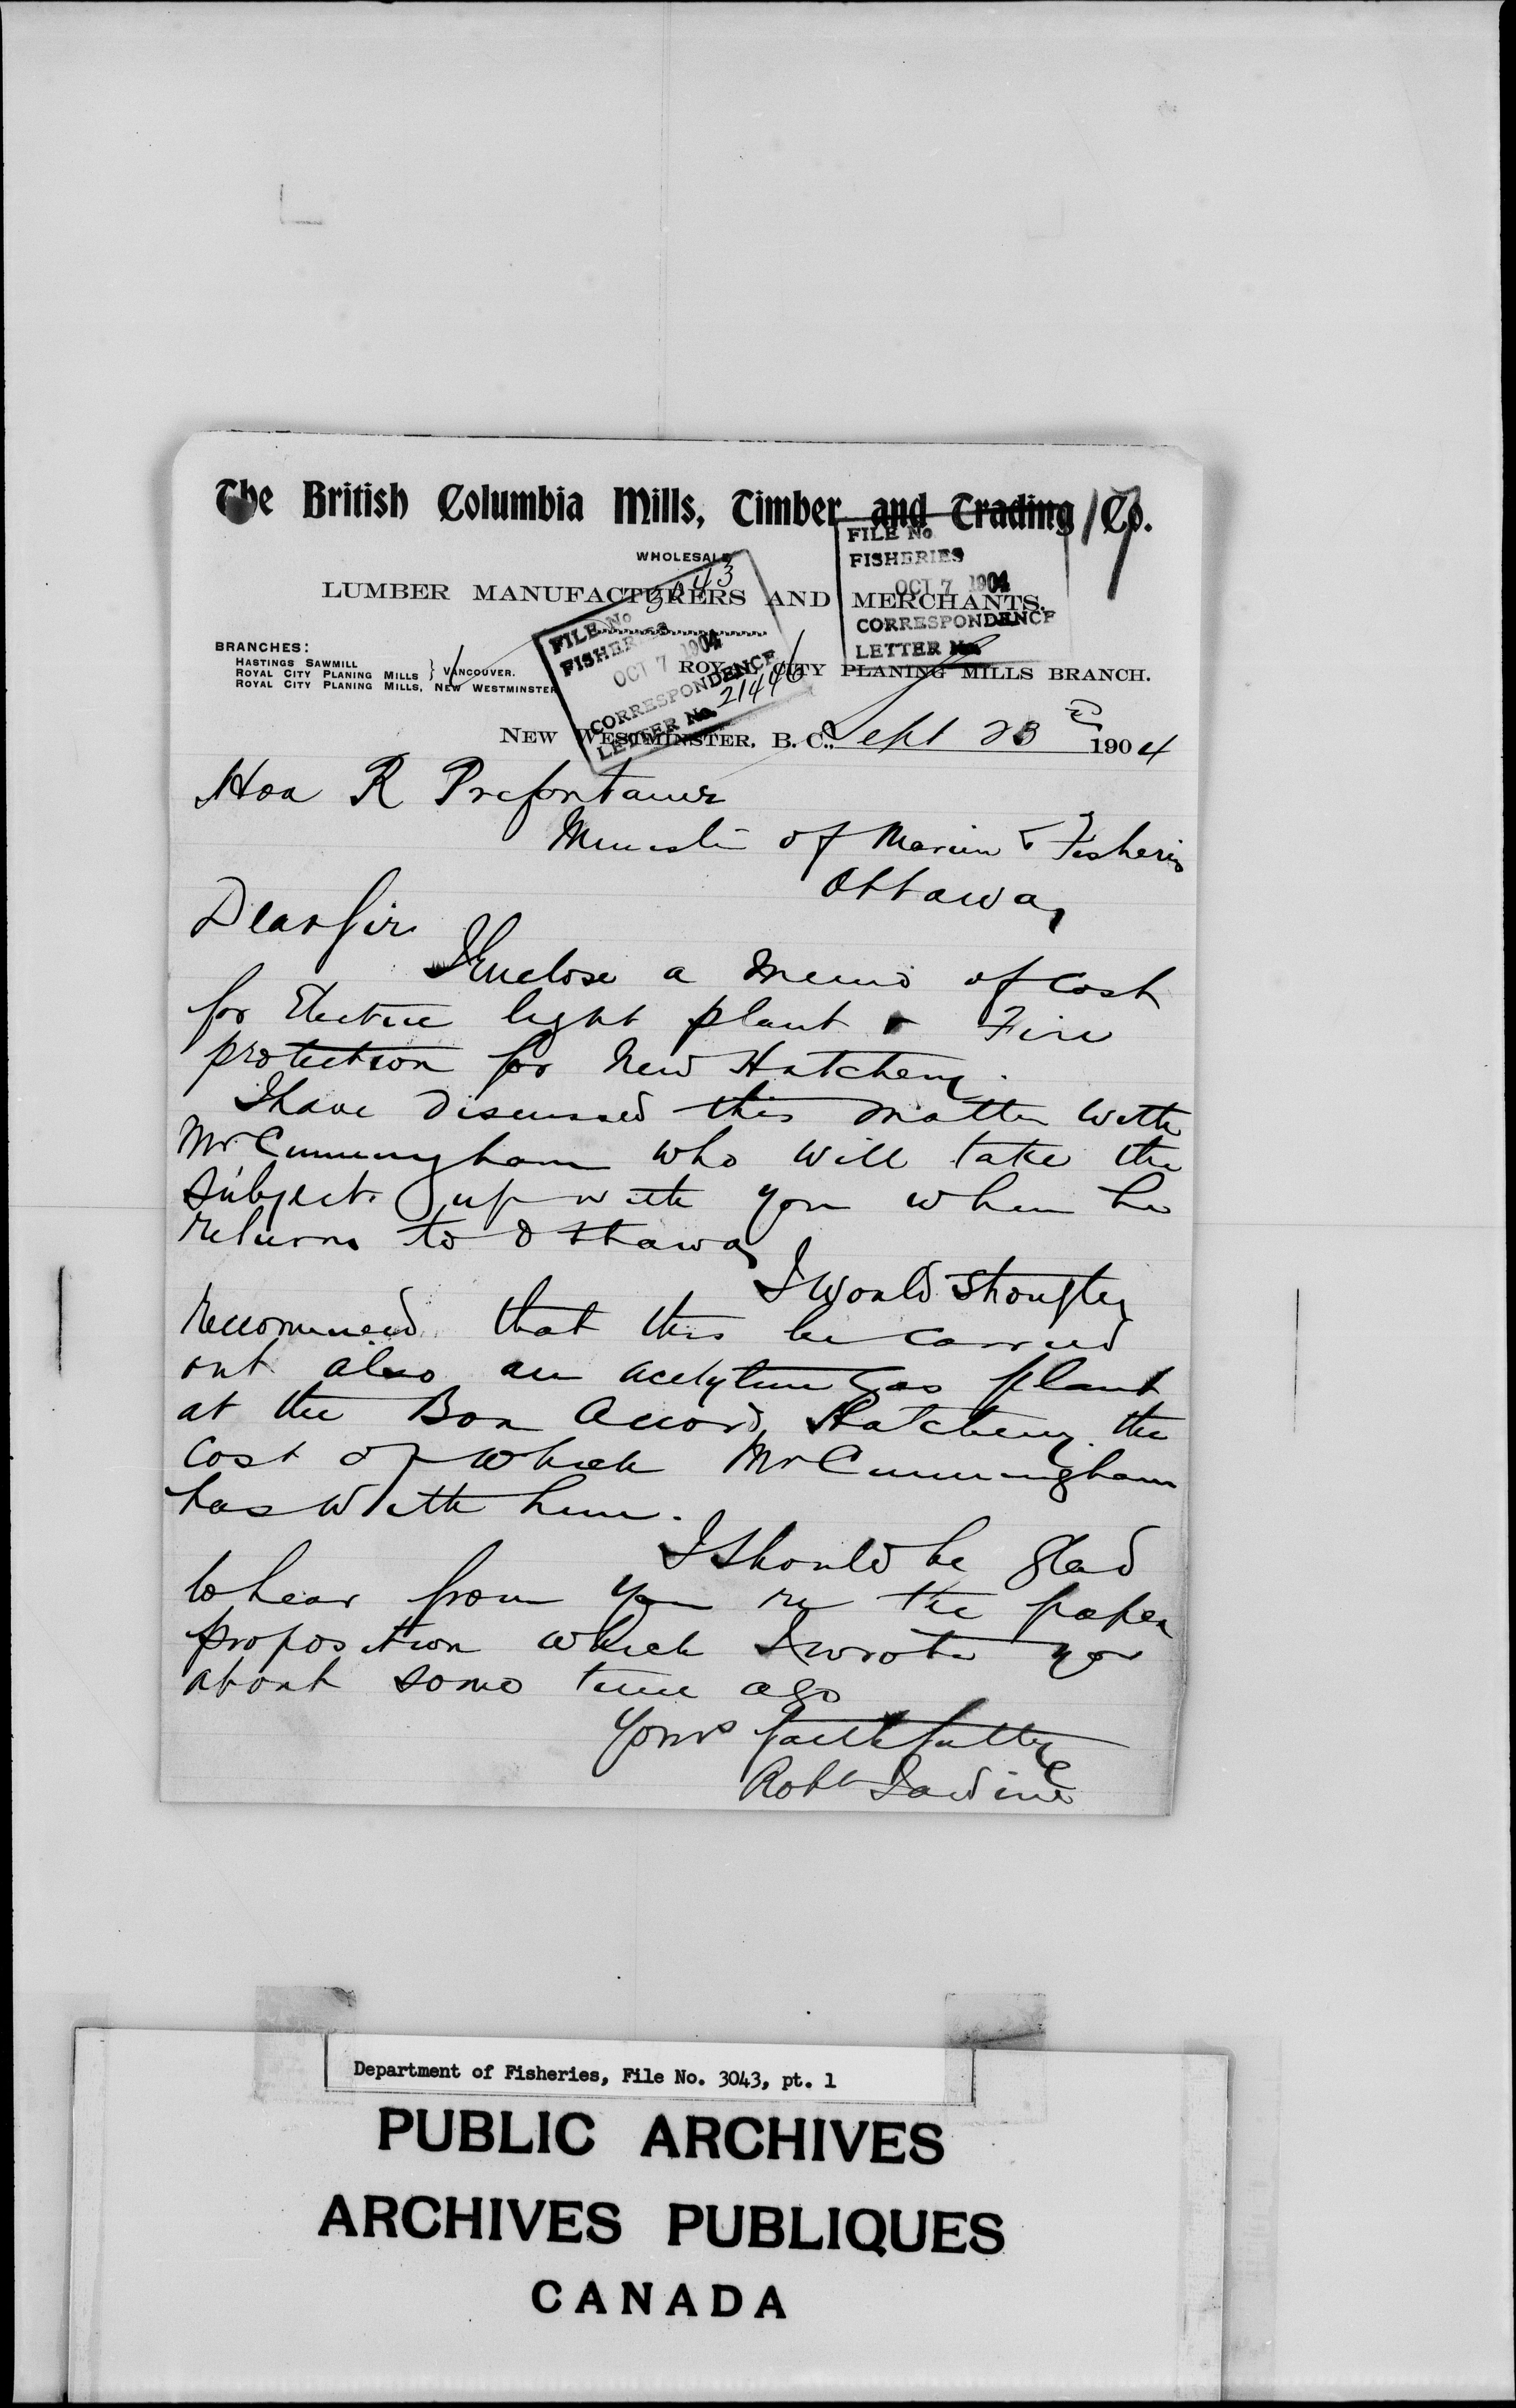 The British Columbia Mills, Timber and Trading Co.
17
WHOLESALE
LUMBER MANUFACTURERS AND MERCHANTS.
FILE No
FISHERIES
OCT 7 1904
CORRESPONDENCE
LETTER No.
FILE No 3043
FISHERIES
OCT 7 1904
CORRESPONDENCE
LETTER No. 21446
BRANCHES:
HASTINGS SAWMILL
ROYAL CITY PLANING MILLS } VANCOUVER.
ROYAL CITY PLANING MILLS, NEW WESTMINSTER
ROYAL CITY PLANING MILLS BRANCH.
NEW WESTMINSTER, B. C., Sept 23rd 1904
Hon R Prefontaine
Minister of Marine & Fisheries
Ottawa,
Dear Sir
I Enclose a memo of cost
for Electric light plant & Fire
protection for New Hatchery.
I have discussed this matter with
Mr Cunningham who will take the
subject up with you when he
returns to Ottawa,
I would strongly
recommend that this be carried
out also an acetylene Gas plant
at the Bon Accord Hatchery the
cost of which Mr Cunningham
has with him.
I Should be glad
to hear from you re the paper
proposition which I wrote you
about some time ago
Yours faithfully
Robt Jardine
Department of Fisheries, File No. 3043, pt. 1
PUBLIC ARCHIVES
ARCHIVES PUBLIQUES
CANADA